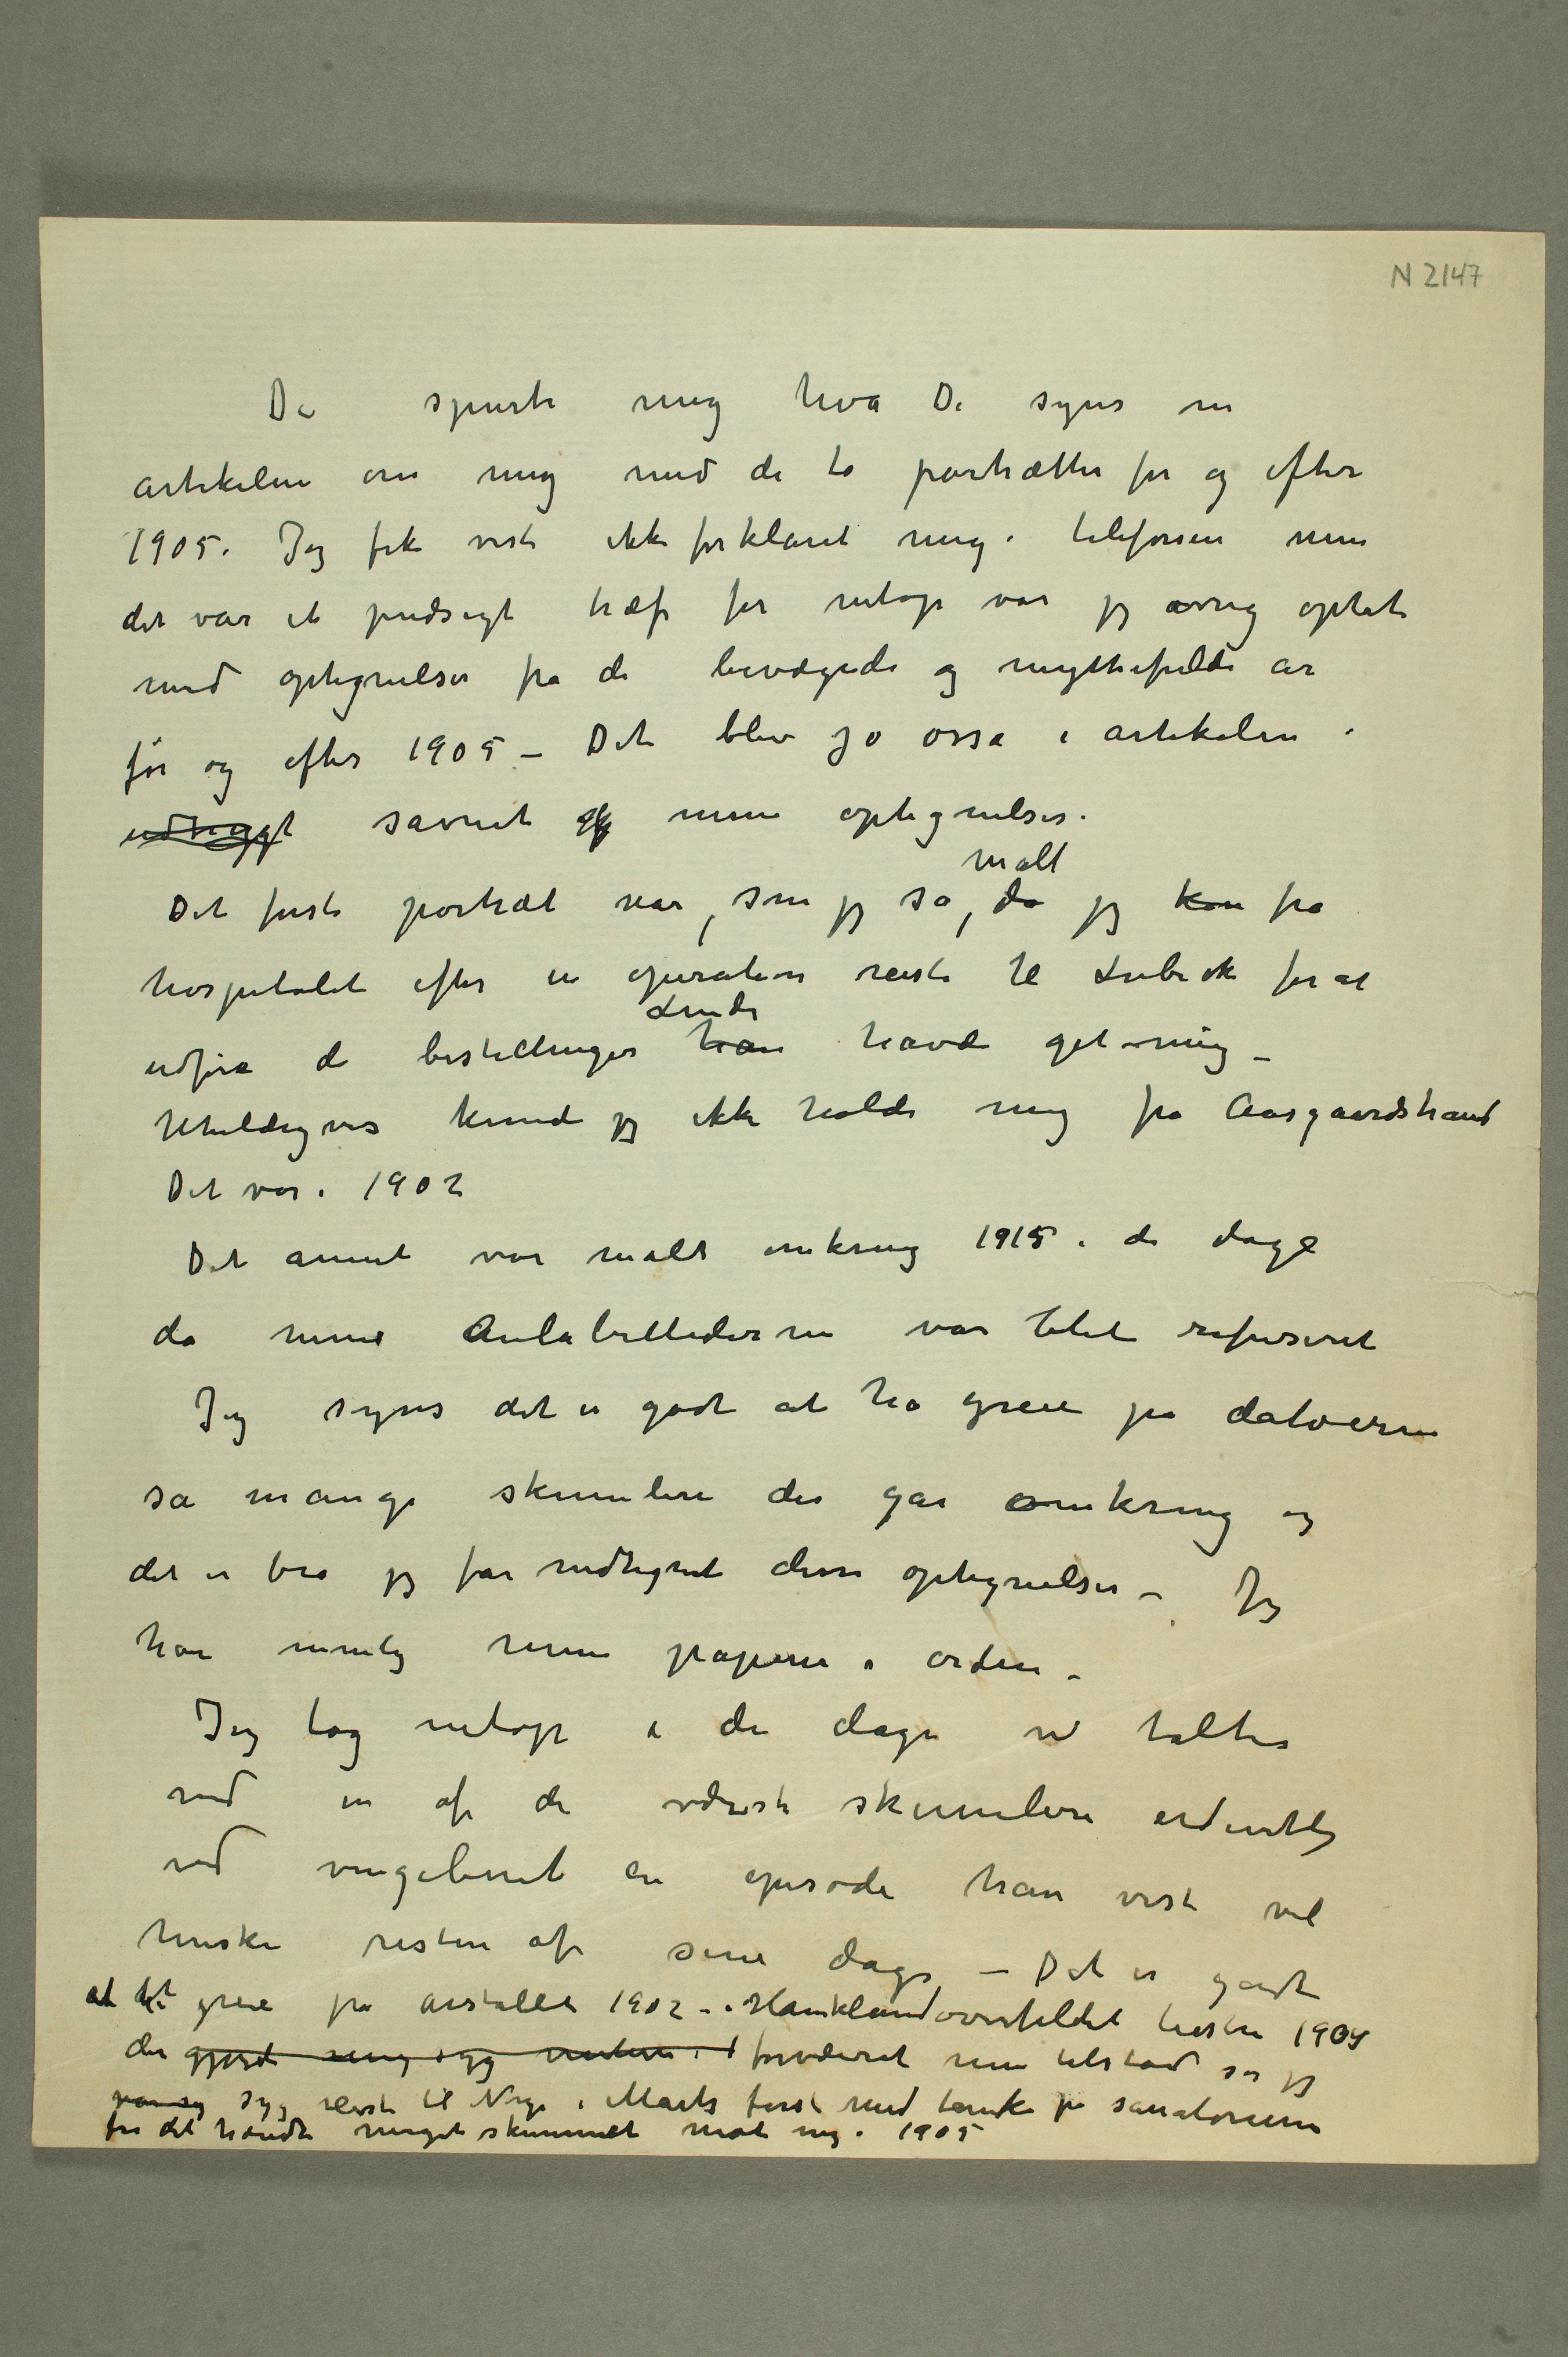 N 2147
De spurte mig hva De synes om
artikelen om mig med de to portrætter før og efter
1905. Jeg fik vist ikke forklaret mig i telefonen men
det var et pudsigt træf for netop var jeg ivrig optat
med optegnelser fra de bevægede og mytthefulde år
før og efter 1905 – Det blev jo osså i artikelen i
savnet mine optegnelser.
malt
Det første portræt var, som jeg sa, da jeg kom fra
hospitalet efter en operation reiste til Lübeck for at
Linde
udføre de bestillinger han havde get mig –
Uheldigvis kunde jeg ikke holde mig fra Aasgaardstrand
Det var i 1902
Det annet var malt omkring 1915 i de dage
da mine Aulabillederne var blet refuseret
Jeg synes det er godt at ha greie på datoerne
så mange skumlere der går omkring og
det er bra jeg får nedtegnet disse optegnelser – Jeg
har nemlig mine papirer i orden –
Jeg tog netop i de dage vi taltes
ved en af de værste skumlere ordentlig
ved vingebenet en episode han vist vil
huske resten af sine dage – Det er godt
at ha greie på årstallet 1902 – i overfaldet høsten 1904
der gjorde mig syg forværret min tilstand så jeg
syg reiste til Norge i Marts først med tanke på sanatorium
før det hændte meget skummelt mot mig i 1905